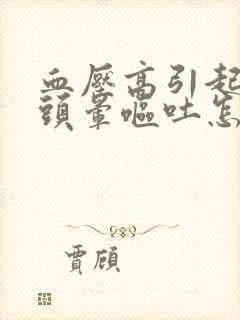 血壓高引起
頭暈嘔吐怎
賈頎